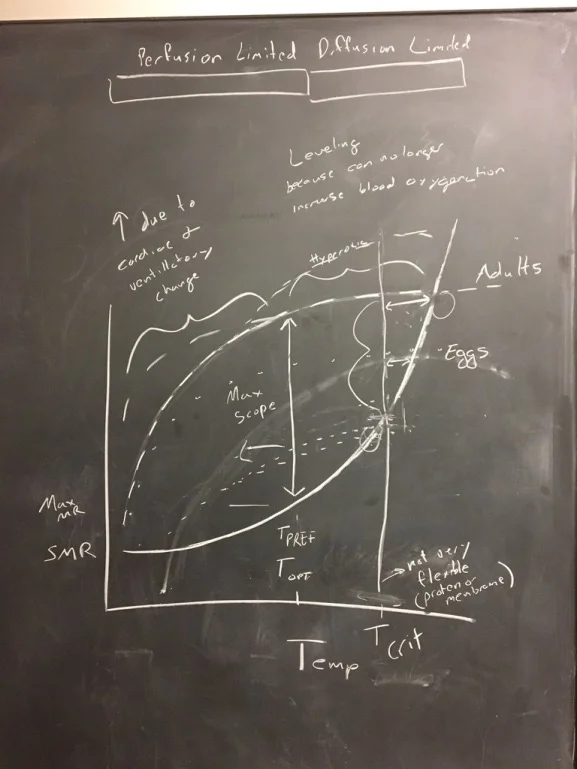 Perfusion Limited Diffusion Limited
Leveling
because can no longer
increase blood oxygenation
↑ due to
cardiac &
ventillatory
change
Hyperoxia
Adults
Eggs
Max
Scope
Max
MR
SMR
TPREF
TOPT
not very
flexible
(protein or
membrane)
Temp
Tcrit